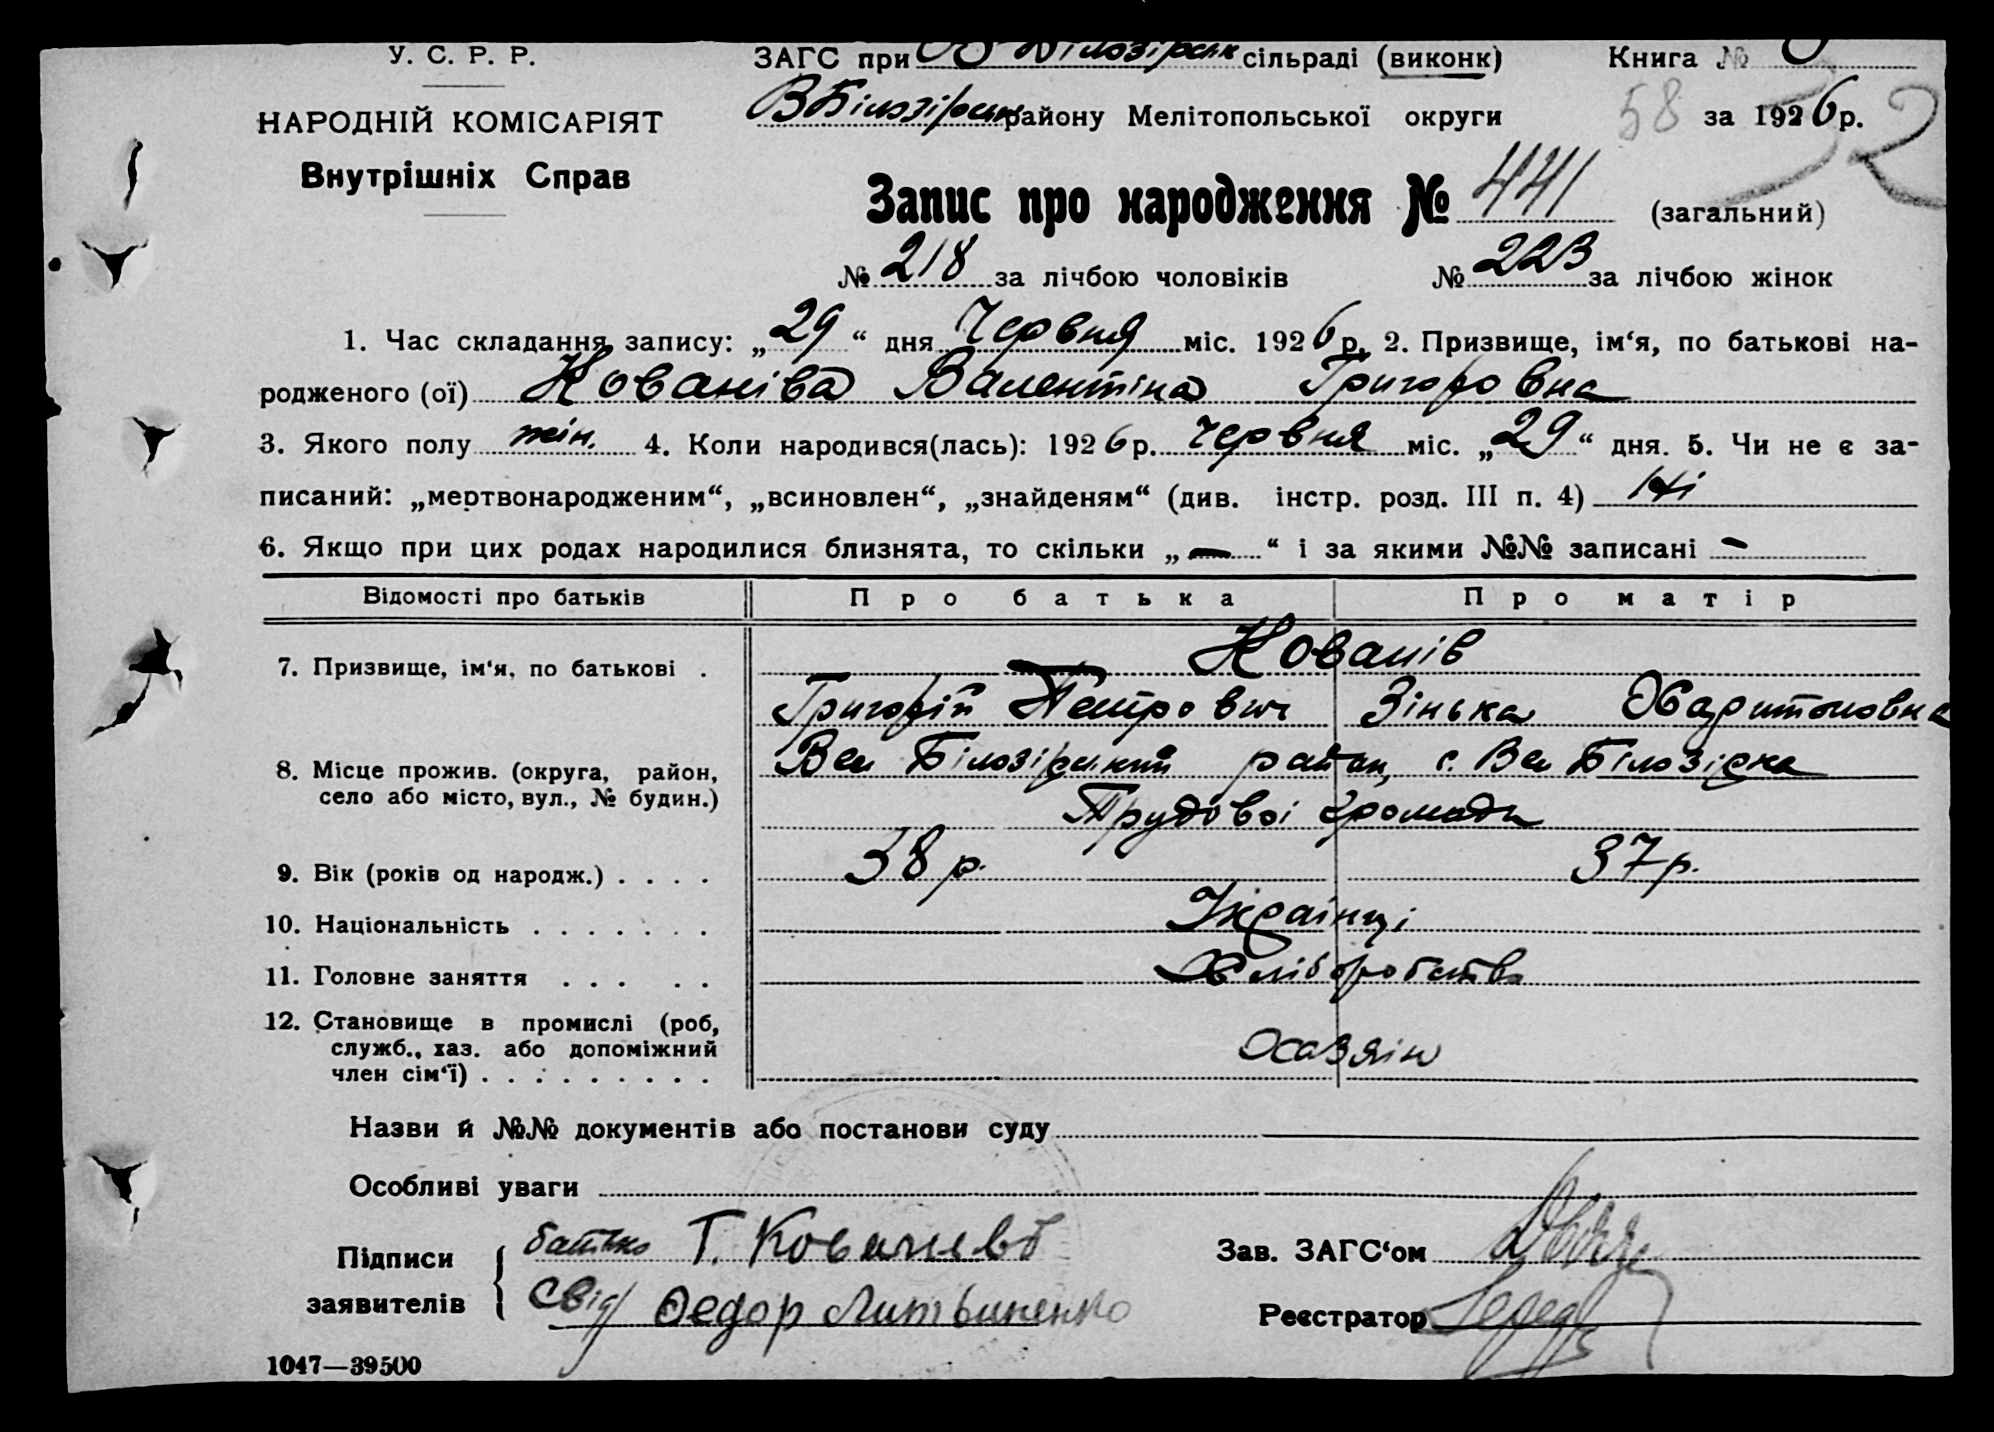 У. С. Р. Р.
ЗАГС при В Білозірськ сільраді (виконк)
Книга №
НАРОДНІЙ КОМІСАРІЯТ
В Білозірськ району Мелітопольської округи
58 за 1926 р.
52
Внутрішніх Справ
Запис про народження № 441 (загальний)
№ 218 за лічбою чоловіків № 223 за лічбою жінок
1. Час складання запису: „29“ дня Червня міс. 1926 р. 2. Призвище, ім‘я, по батькові на-
родженого (ої) Кованіва Валентіна Григоровна
3. Якого полу жін. 4. Коли народився(лась): 1926 р. червня міс. „29“ дня. 5. Чи не є за-
писаний: „мертвонародженим“, „всиновлен“, „знайденям“ (див. інстр. розд. III п. 4) Ні
6. Якщо при цих родах народилися близнята, то скільки „—“ і за якими №№ записані -
Відомості про батьків Про батька Про матір
7. Призвище, ім‘я, по батькові . Кованів
Григорій Петрович Зінька Харитоновна
8. Місце прожив. (округа, район, Вел Білозірський район, с. Вел Білозірка
село або місто, вул., № будин.)
Трудової громади
9. Вік (років од народж.) . . . . 38 р. 37 р.
10. Національність . . . . . . . Українці
11. Головне заняття . . . . . Хліборобство
12. Становище в промислі (роб,
служб., хаз. або допоміжний Хазяїн
член сім‘ї) . . . . . . . . .
Назви й №№ документів або постанови суду
Особливі уваги
Підписи батько Г. Ковачневъ Зав. ЗАГС‘ом
заявителів Свід Федор Литвиненко Реєстратор
1047—39500